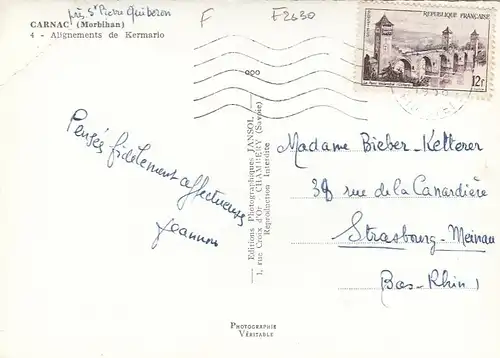 près St Pierre Quiberon
CARNAC (Morbihan)
4 - Alignements de Kermario
F
F2630
RÉPUBLIQUE FRANÇAISE
12F
Pensées fidèlement affectueuses
Jeannine
Editions Photographiques JANSOL
1, rue Croix d'Or - CHAMBÉRY (Savoie)
Reproduction Interdite
Madame Bieber-Ketterer
38 rue de la Canardière
Strasbourg-Meinau
Bas-Rhin)
PHOTOGRAPHIE
VÉRITABLE